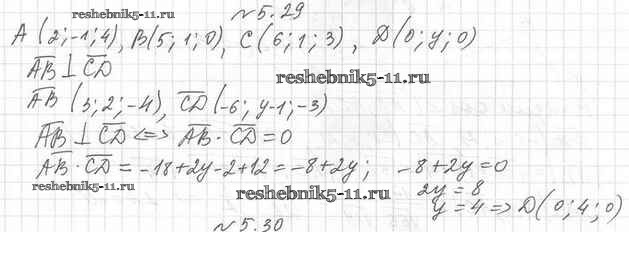 reshebnik5-11.ru
№5.29
A (2;-1;4), B(5;1;0), C(6;1;3), D(0;y;0)
AB⊥CD
reshebnik5-11.ru
AB (3;2;-4), CD(-6; y-1;-3)
AB⊥CD <=> AB·CD=0
AB·CD=-18+2y-2+12=-8+2y; -8+2y=0
reshebnik5-11.ru
reshebnik5-11.ru
2y=8
y=4=>D(0;4;0)
№5.30